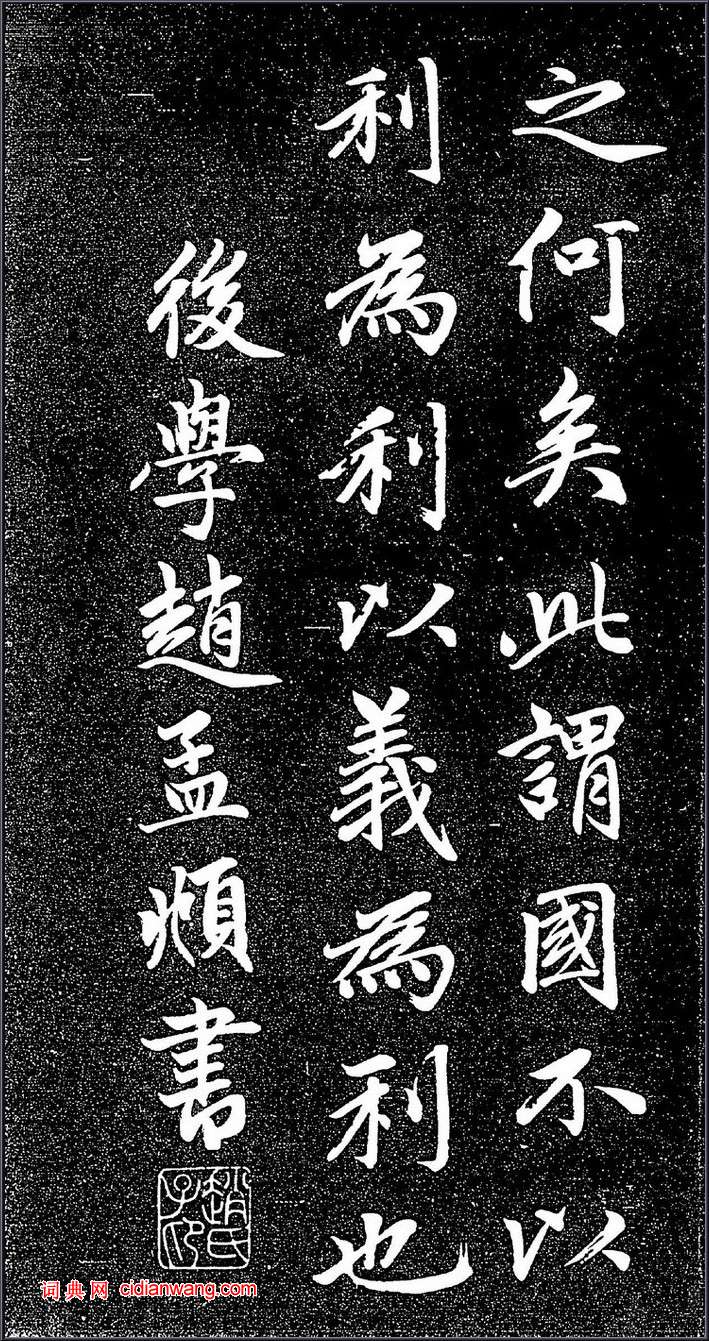 之何矣此謂國不以
利為利以義為利也
後學趙孟頫書
趙氏子昂
词典网 cidianwang.com